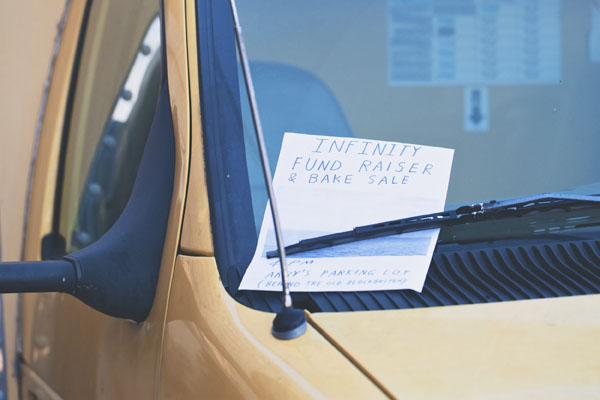 INFINITY
FUND RAISER
& BAKE SALE
4 PM
ANDY'S PARKING LOT
(BEHIND THE OLD BLOCKBUSTER)